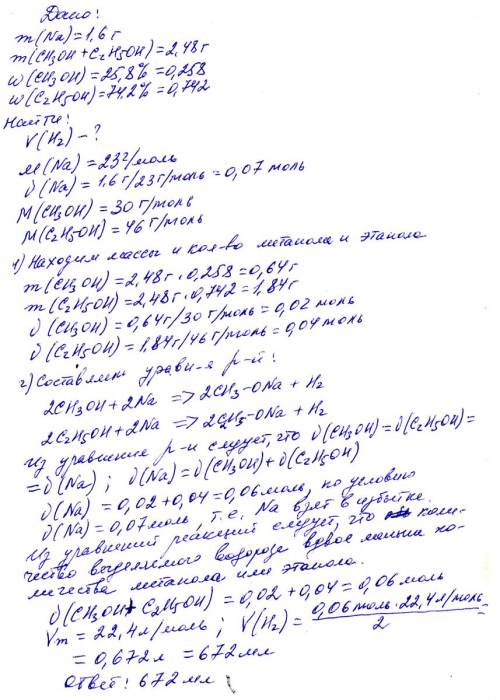 Дано:
m(Na)=1,6 г
m(CH3OH+C2H5OH)=2,48г
w(CH3OH)=25,8%=0,258
w(C2H5OH)=74,2%=0,742
Найти:
V(H2)-?
M(Na)=23г/моль
ν(Na)=1,6г/23г/моль=0,07 моль
M(CH3OH)=30 г/моль
M(C2H5OH)=46 г/моль
1) Находим массы и кол-во метанола и этанола
m(CH3OH)=2,48г·0,258=0,64г
m(C2H5OH)=2,48г·0,742=1,84г
ν(CH3OH)=0,64г/30 г/моль=0,02 моль
ν(C2H5OH)=1,84г/46 г/моль=0,04 моль
2) Составляем уравн-я р-й:
2CH3OH+2Na => 2CH3-ONa + H2
2C2H5OH+2Na => 2C2H5-ONa + H2
Из уравнения р-и следует, что ν(CH3OH)=ν(C2H5OH)=
=ν(Na); ν(Na)=ν(CH3OH)+ν(C2H5OH)
ν(Na)=0,02+0,04=0,06моль, по условию
ν(Na)=0,07моль, т.е. Na взят в избытке.
Из уравнений реакций следует, что коли-
чество выделяемого водорода вдвое меньше ко-
личества метанола или этанола.
ν(CH3OH+C2H5OH)=0,02+0,04=0,06моль
Vm=22,4л/моль; V(H2)=0,06моль·22,4л/моль/2=
=0,672л=672мл
Ответ: 672 мл